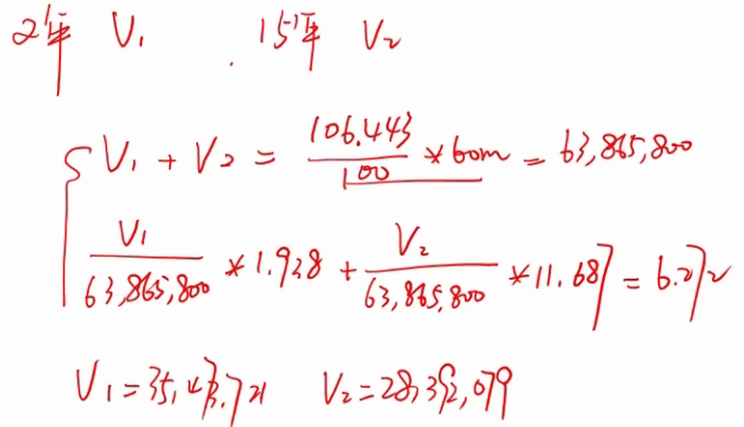 2年 V₁ . 15年 V₂
V₁ + V₂ = 106.443/100 * 60m = 63,865,800
V₁/63,865,800 * 1.938 + V₂/63,865,800 * 11.687 = 6.272
V₁ = 35,473,721 V₂ = 28,392,079